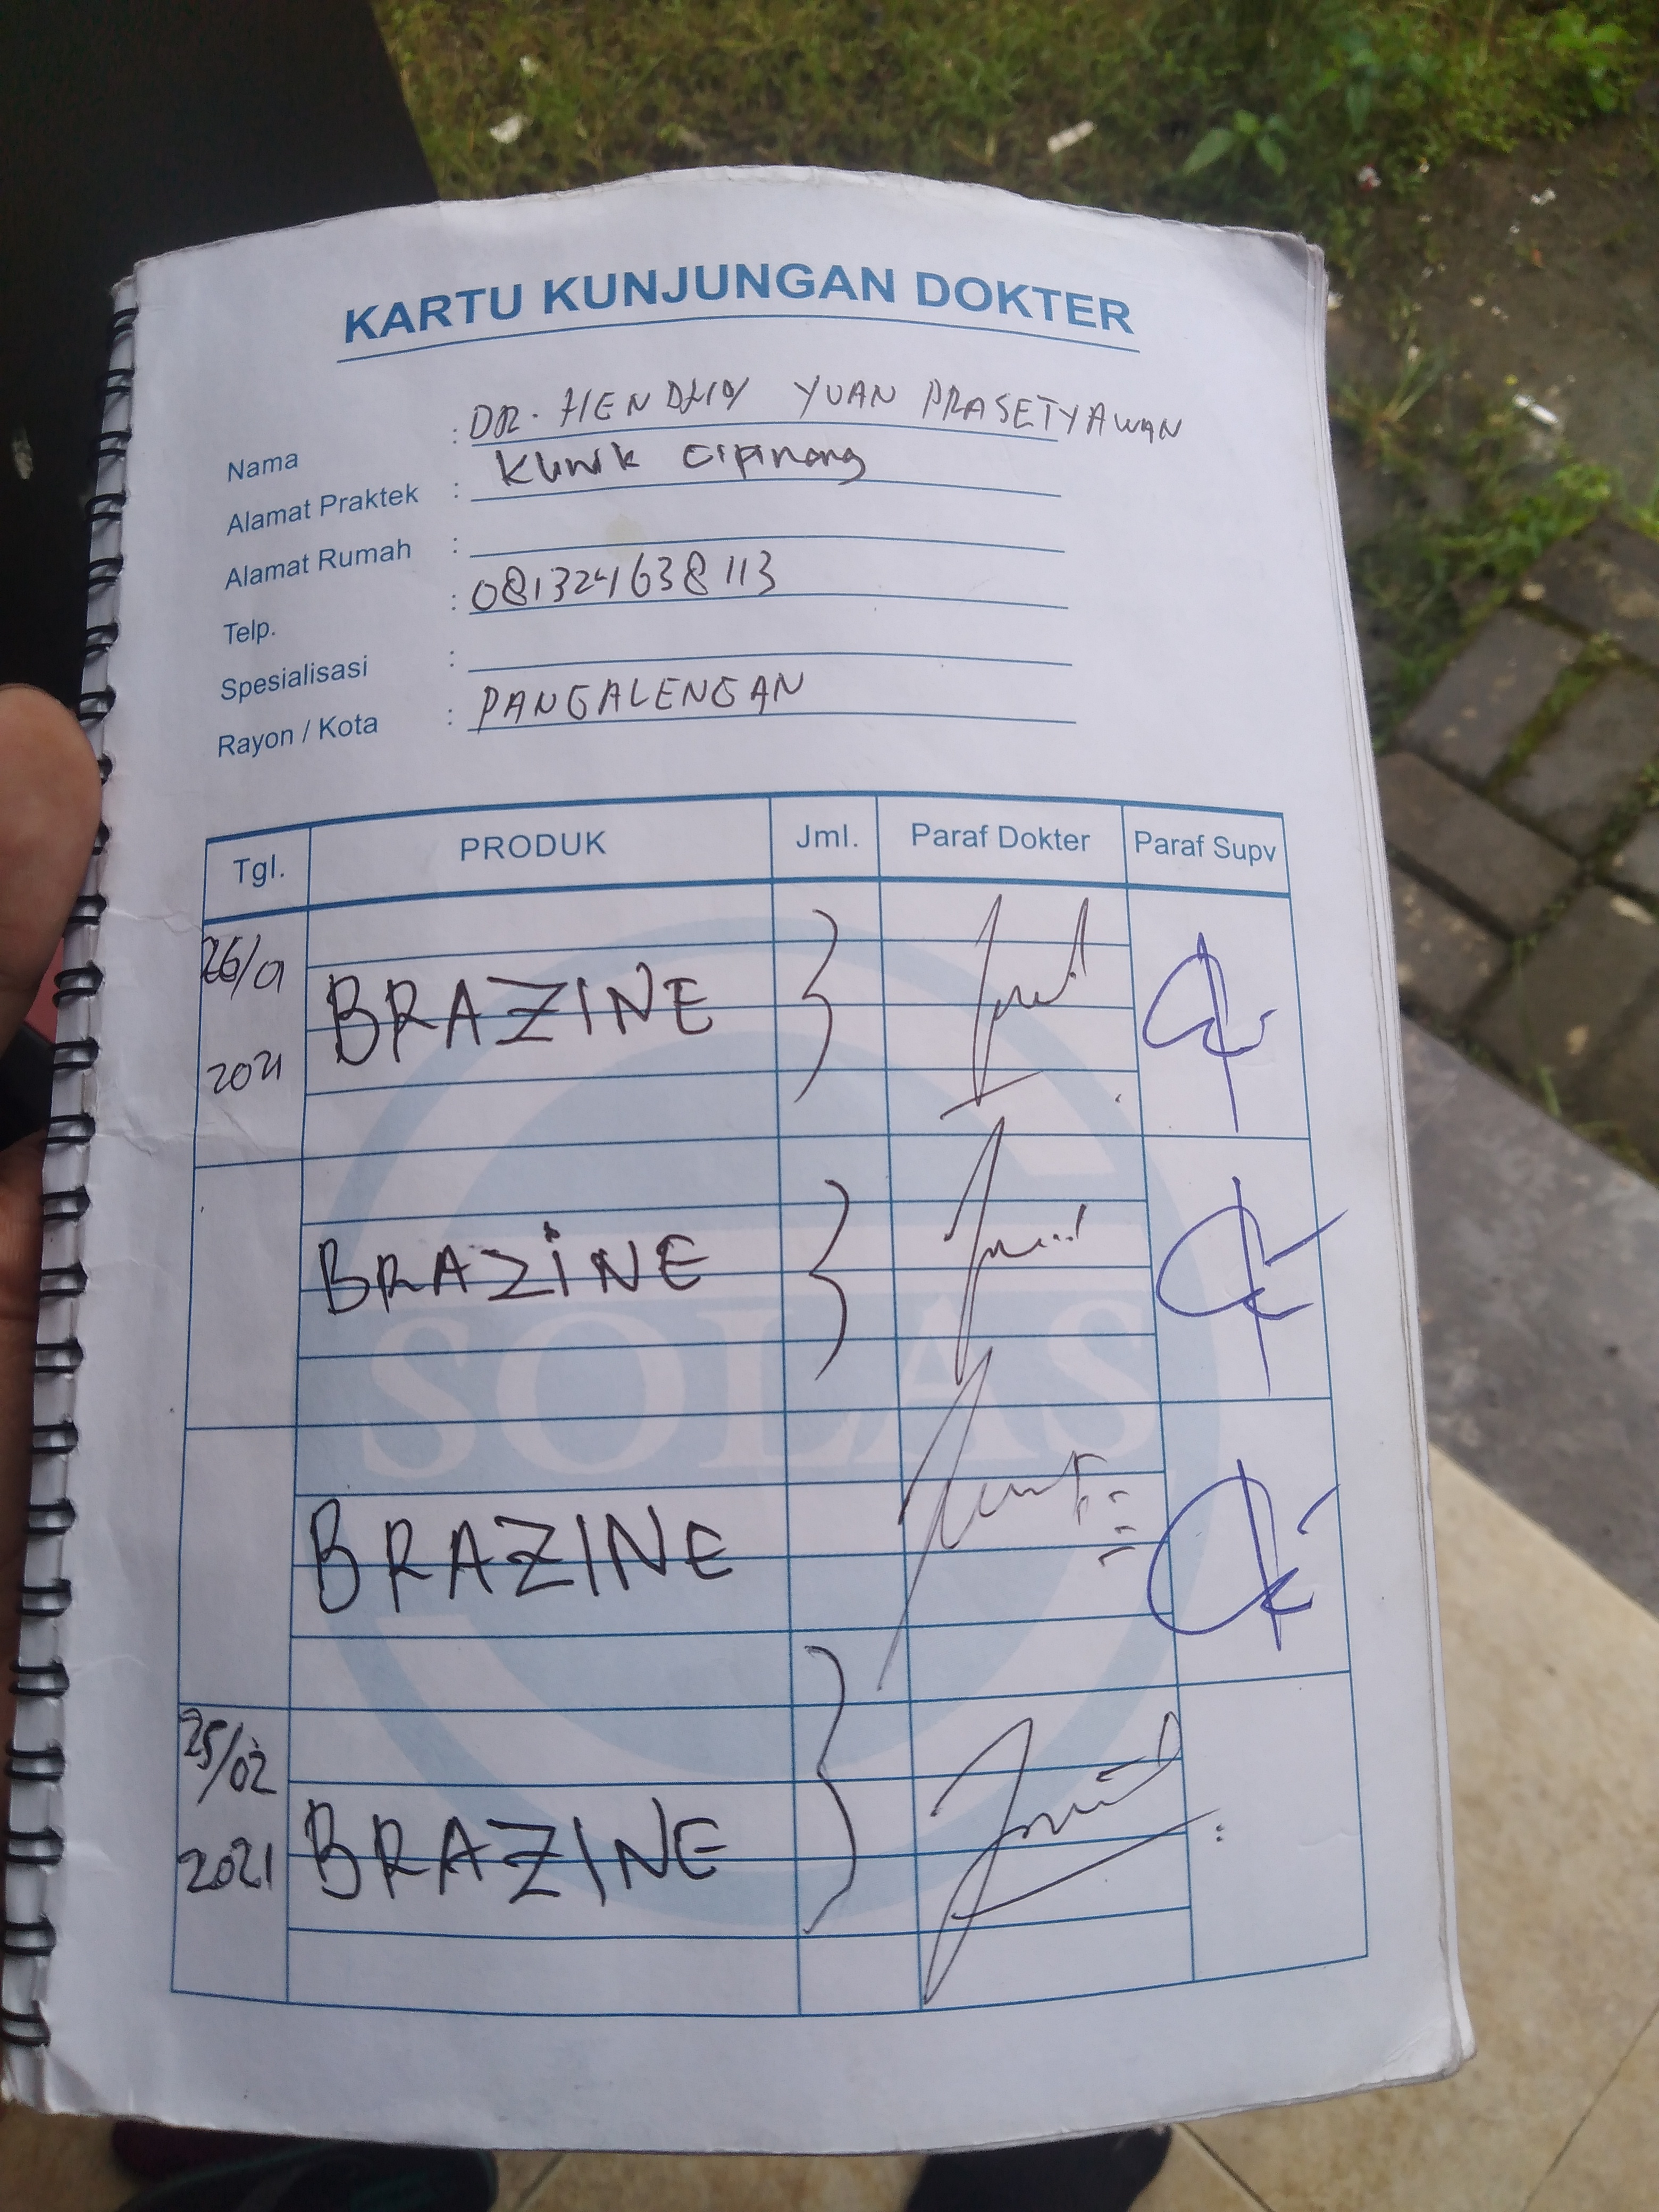 KARTU KUNJUNGAN DOKTER
Nama : DR. HENDHY YUAN PRASETYAWAN
Alamat Praktek : Klinik Cipinang
Alamat Rumah :
Telp. : 081324638113
Spesialisasi :
Rayon / Kota : PANGALENGAN
Tgl. PRODUK Jml. Paraf Dokter Paraf Supv
26/01 2021 BRAZINE
BRAZINE
SOLAS
BRAZINE
25/02 2021 BRAZINE